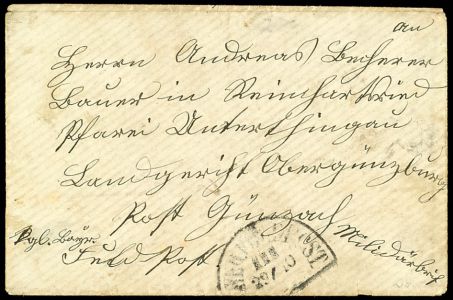 An
Herrn Andreas Becherer
Bauer in Reinhartsried
Pfarei Unterthingau
Landgericht Obergünzburg
Post Günzach
Kgl. Bayr.
Feld Post
Militärbrief